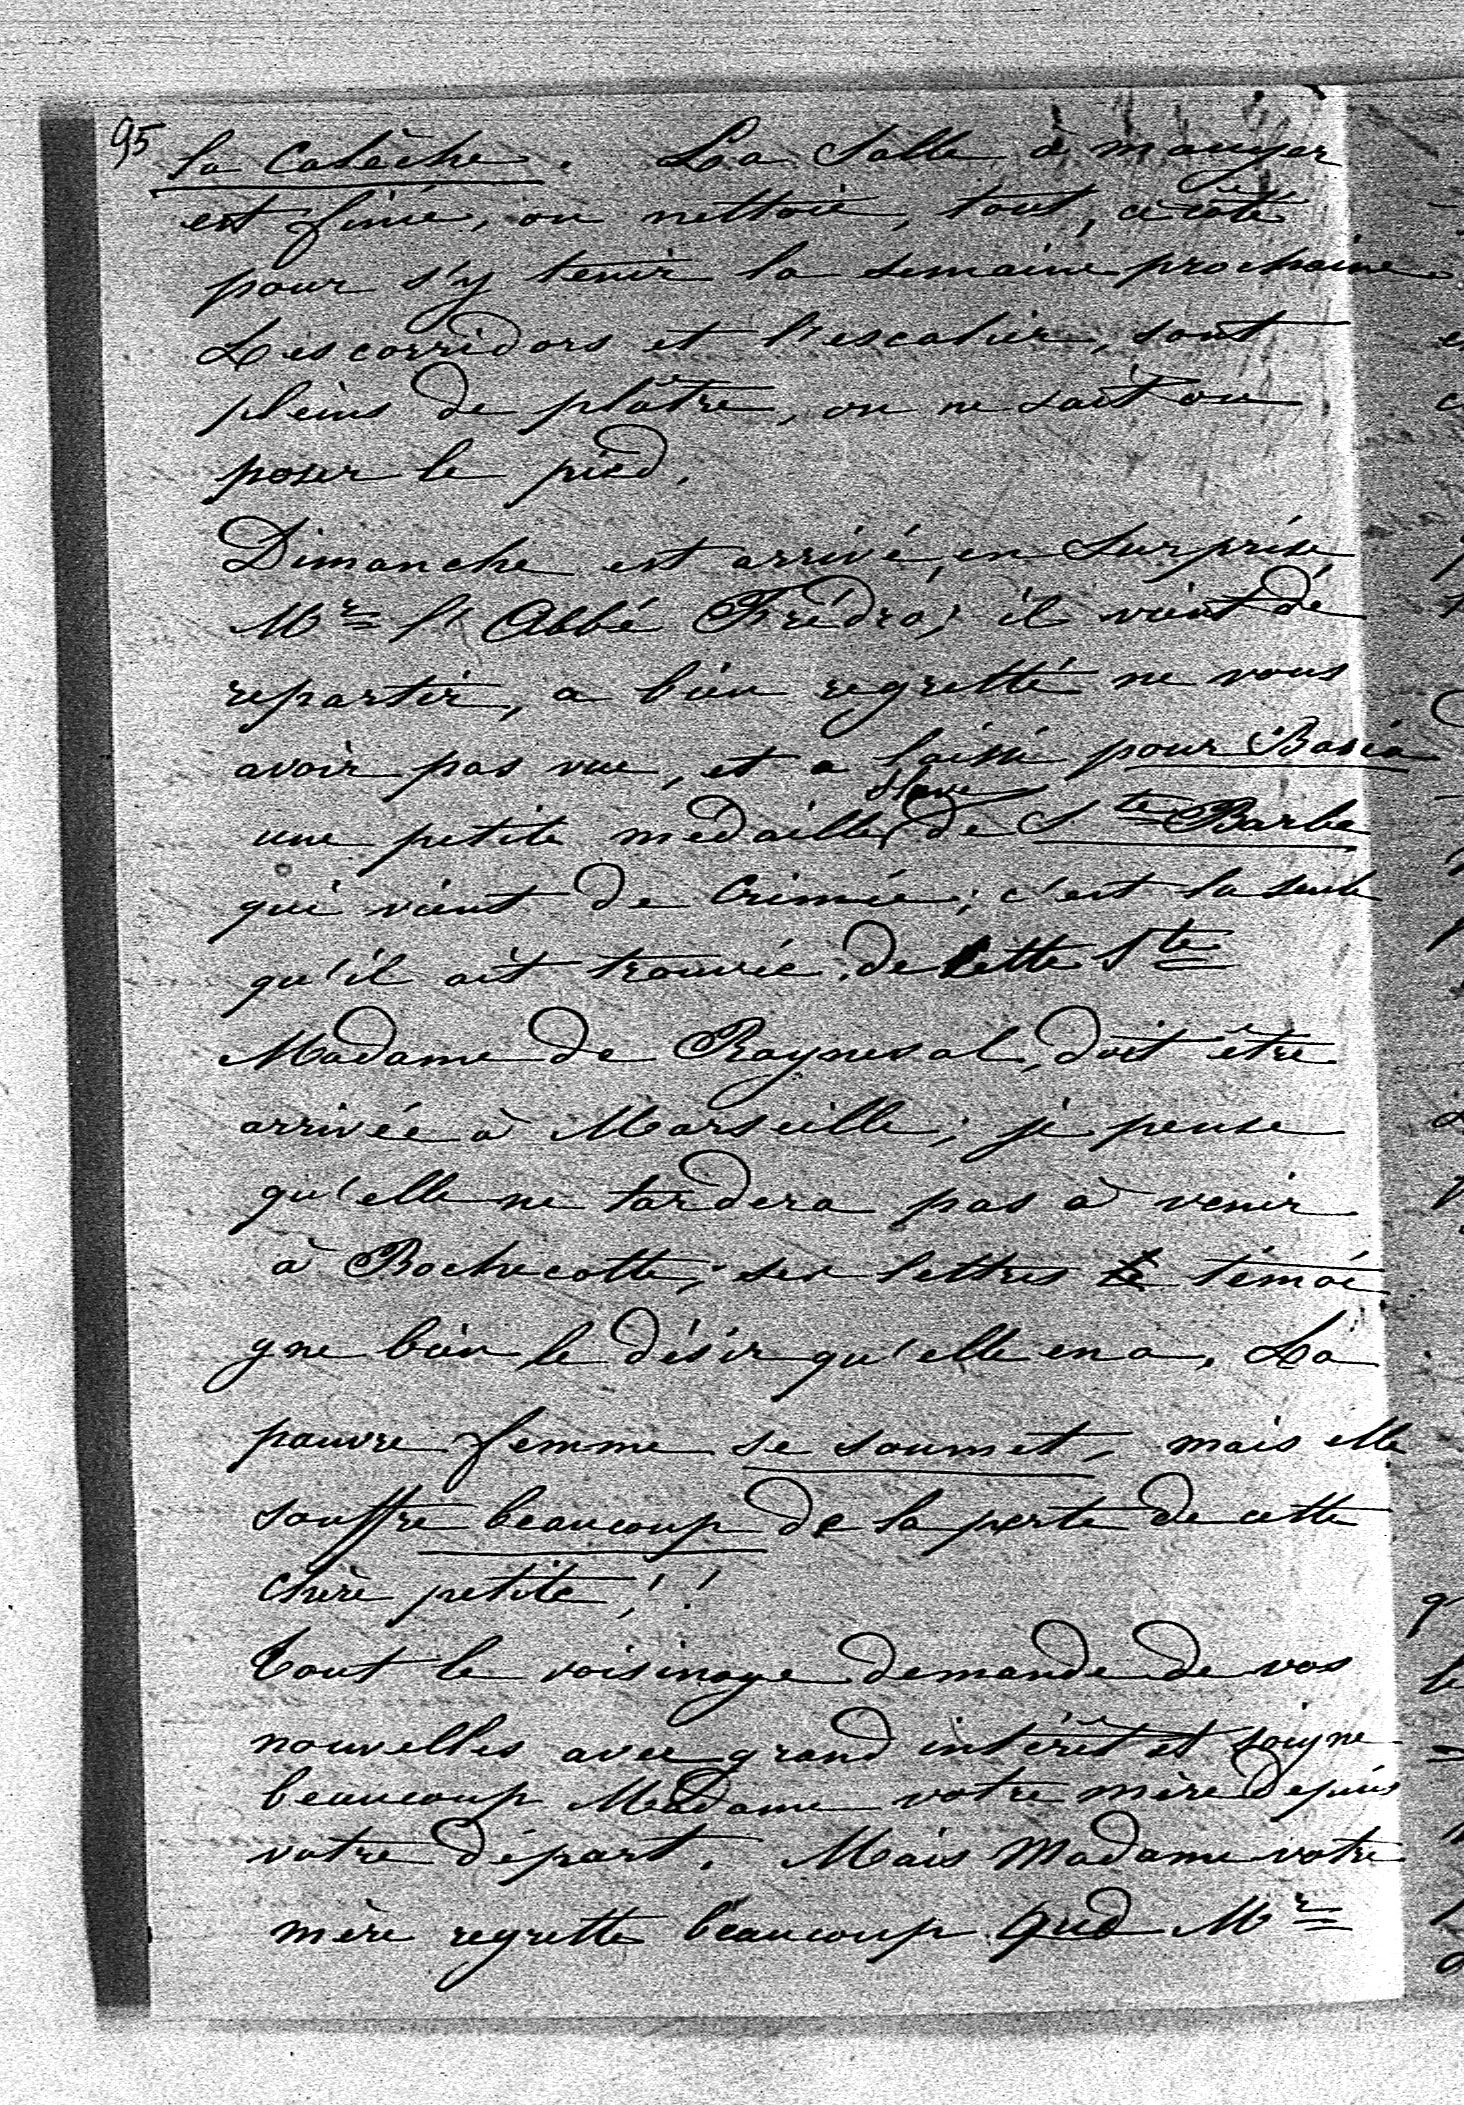 95
la Calèche. La Salle à manger
est finie, on nettoie, tout, à côté
pour s'y tenir la semaine prochaine.
Les corridors et l'escalier, sont
pleins de plâtre, on ne sait où
poser le pied.
Dimanche est arrivé, en surprise
Mr l'Abbé Frédro; il vient de
repartir, a bien regretté ne vous
avoir pas vue, et a laissé pour Basia
slave
une petite médaille, de Ste Barbe
qui vient de Crimée; c'est la seule
qu'il ait trouvée, de cette Ste
Madame de Rayneval, doit être
arrivée à Marseille; je pense
qu'elle ne tardera pas à venir
à Rochecotte; ses lettres témoi
gne bien le désir qu'elle en a. La
pauvre femme se soumet, mais elle
souffre beaucoup de la perte de cette
chère petite!!
Tout le voisinage demande de vos
nouvelles avec grand intérêt et soigne
beaucoup Madame votre mère depuis
votre départ. Mais Madame votre
mère regrette beaucoup que Mr